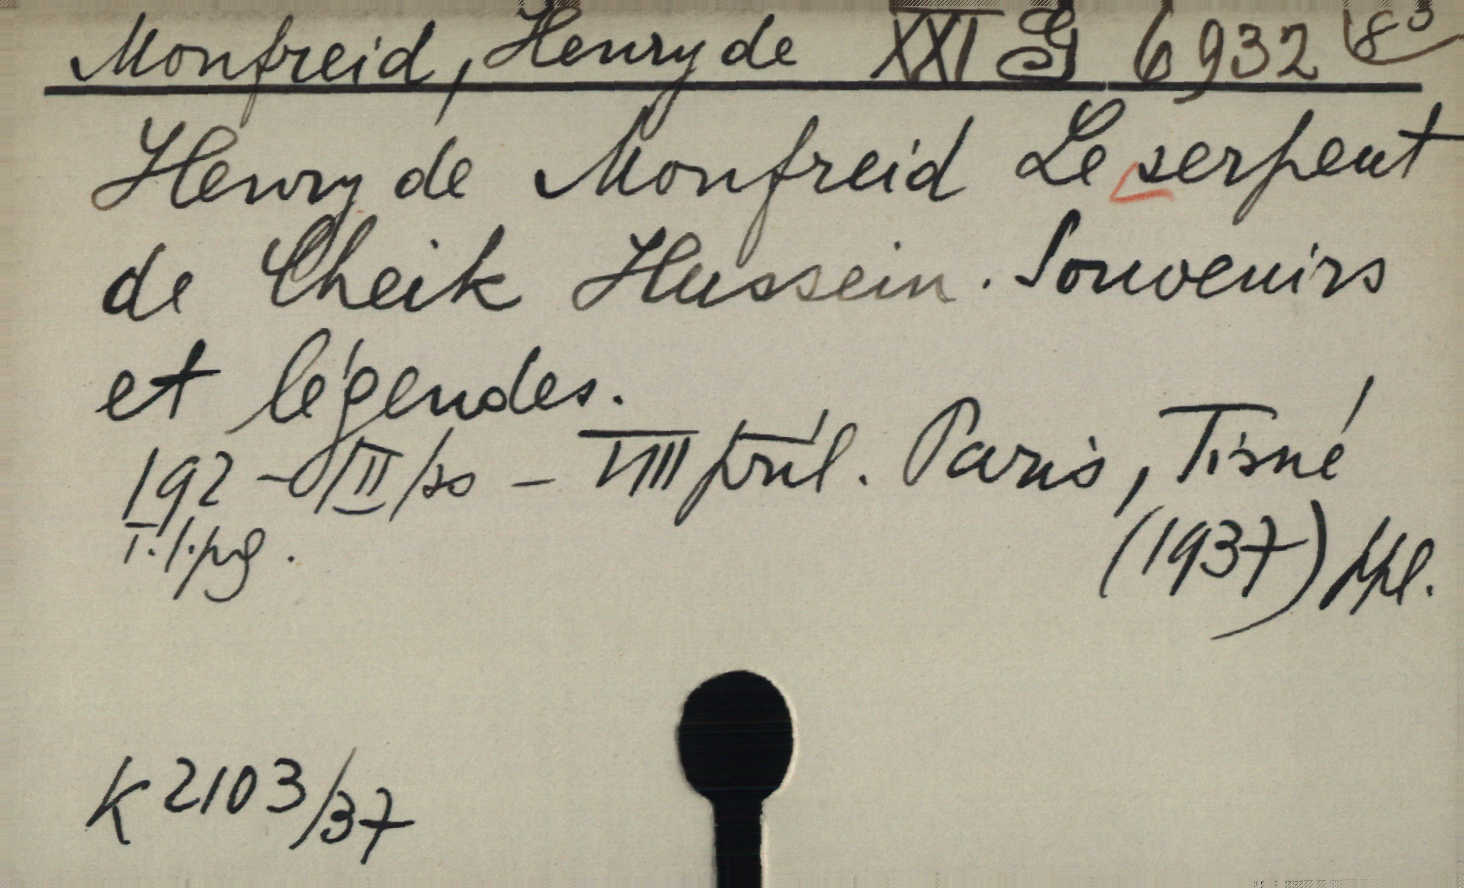 Monfreid, Henry de XXI G 6932 18³
Henry de Monfreid Le serpent
de Cheik Hussein. Souvenirs
et légendes.
192 - /II/ - VIII příl. Paris, Tisné
(1937) ppl.
K 2103/37